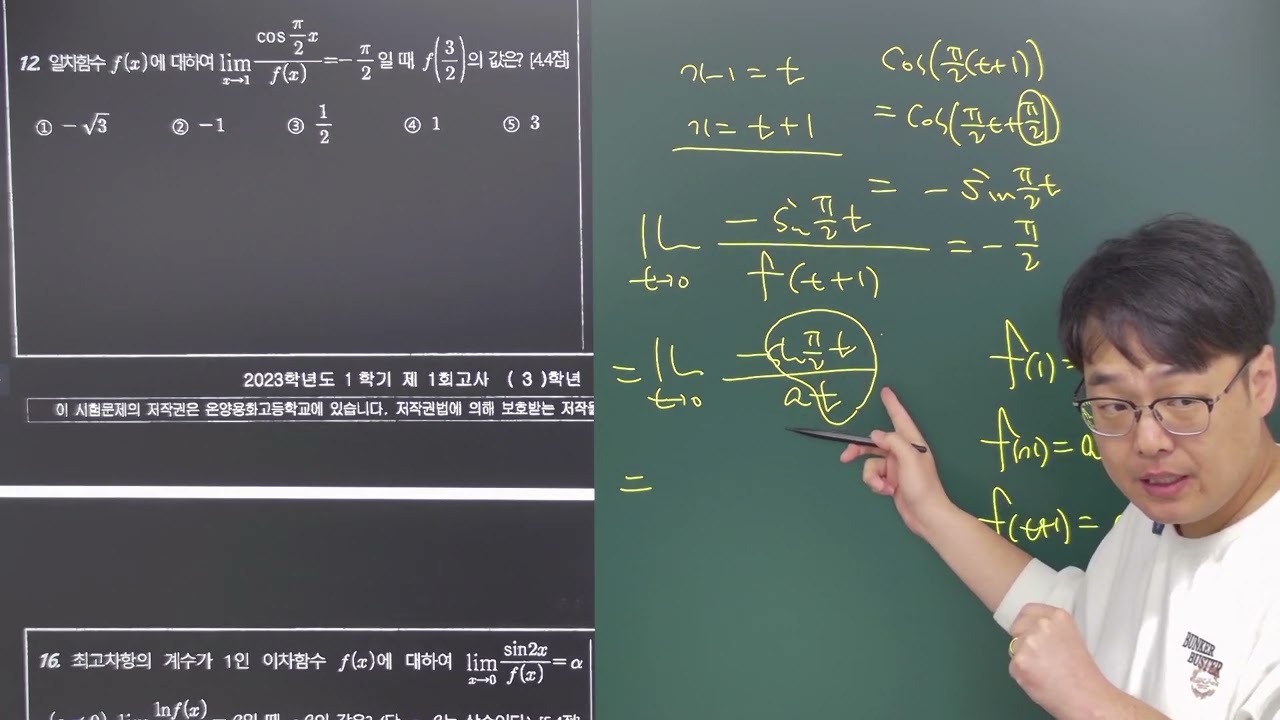 12. 일차함수 f(x)에 대하여 lim_{x→1} \frac{cos \frac{π}{2}x}{f(x)} = -\frac{π}{2} 일 때, f(\frac{3}{2})의 값은? [4.4점]
① -√3 ② -1 ③ \frac{1}{2} ④ 1 ⑤ 3
2023학년도 1학기 제 1회고사 ( 3 )학년
이 시험문제의 저작권은 온양용화고등학교에 있습니다. 저작권법에 의해 보호받는 저작
16. 최고차항의 계수가 1인 이차함수 f(x)에 대하여 lim_{x→0} \frac{sin2x}{f(x)} = α
x-1 = t
x = t+1
cos(\frac{π}{2}(t+1))
= cos(\frac{π}{2}t+\frac{π}{2})
= -sin\frac{π}{2}t
lim_{t→0} \frac{-sin\frac{π}{2}t}{f(t+1)} = -\frac{π}{2}
= lim_{t→0} \frac{-sin\frac{π}{2}t}{at}
=
f(1)=
f(x)= a
f(t+1)=
BUNKER
BUSTER